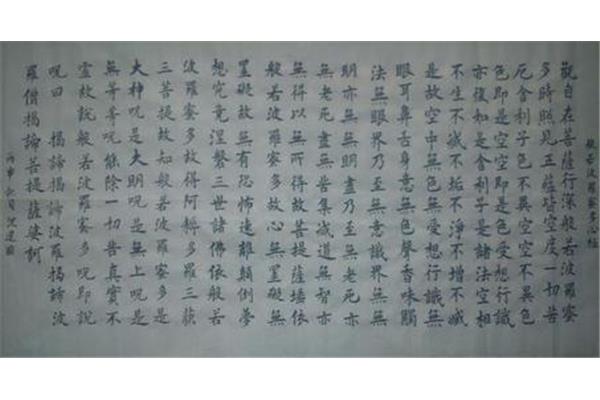 般若波羅蜜多心經
觀自在菩薩行深般若波羅蜜
多時照見五蘊皆空度一切苦
厄舍利子色不異空空不異色
色即是空空即是色受想行識
亦復如是舍利子是諸法空相
不生不滅不垢不淨不增不減
是故空中無色無受想行識無
眼耳鼻舌身意無色聲香味觸
法無眼界乃至無意識界無無
明亦無無明盡乃至無老死亦
無老死盡無苦集滅道無智亦
無得以無所得故菩提薩埵依
般若波羅蜜多故心無罣礙無
罣礙故無有恐怖遠離顛倒夢
想究竟涅槃三世諸佛依般若
波羅蜜多故得阿耨多羅三藐
三菩提故知般若波羅蜜多是
大神呪是大明呪是無上呪是
無等等呪能除一切苦真實不
虛故說般若波羅蜜多呪即說
呪曰 揭諦揭諦波羅揭諦波
羅僧揭諦菩提薩婆訶
丙申